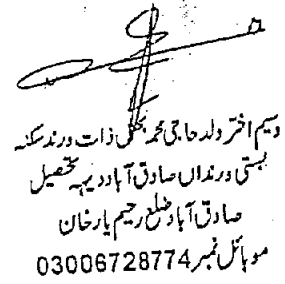 وسیم اختر ولد حاجی محمد بخش ذات ورند سکنہ
بستی ورنداں صادق آباد دیہہ تحصیل
صادق آباد ضلع رحیم یار خان
موبائل نمبر 03006728774